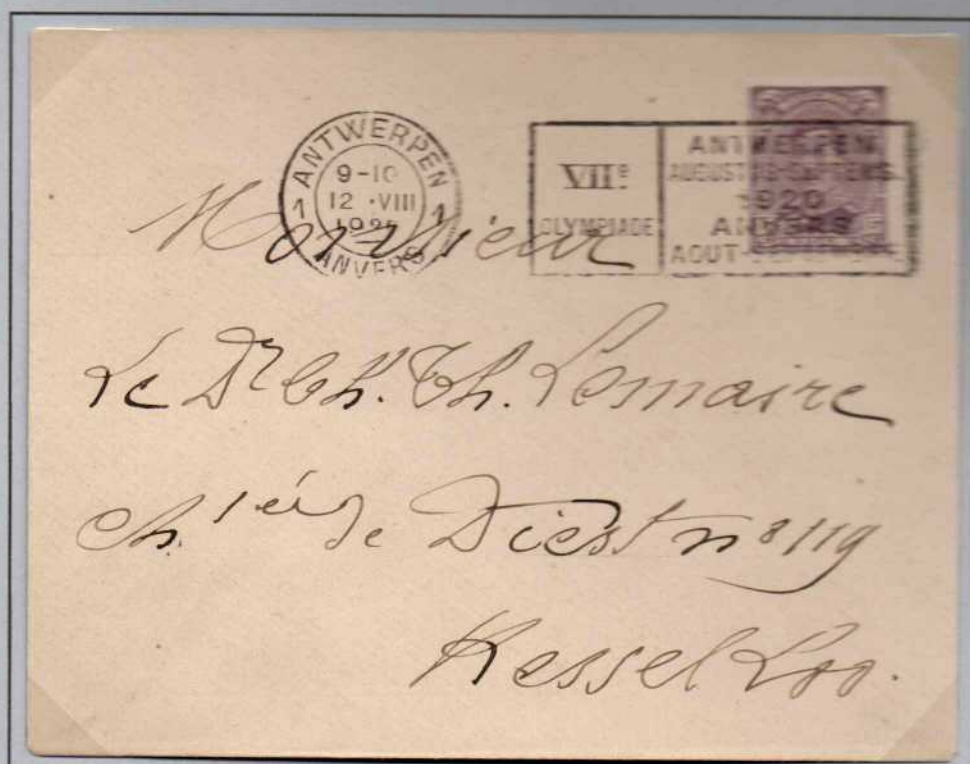 ANTWERPEN
9-10
12 · VIII
1 1
ANVERS
VIIe
OLYMPIADE
ANTWERPEN
AUGUSTUS-SEPTEMB.
1920
ANVERS
AOUT-SEPTEMBRE
Monsieur
Le Dr Ch. Th. Lemaire
de Diest no 119
Kessel Loo.